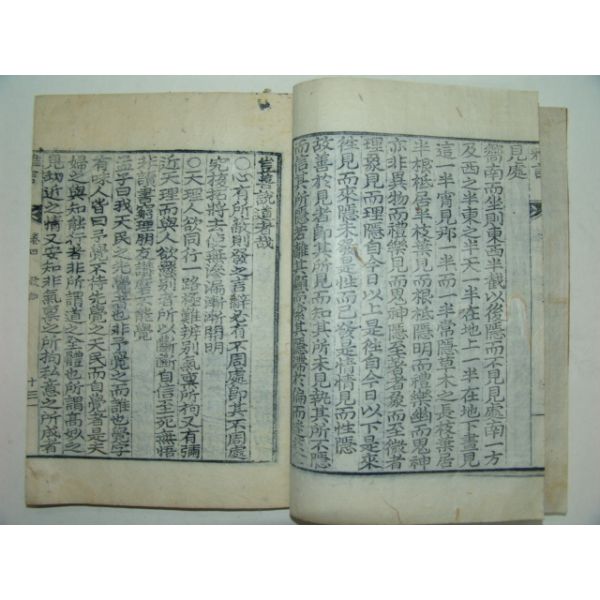 見處
嚮南而坐則東西半截以後隱而不見見處南一方
及西之半東之半天一半在地上一半在地下晝見
這一半宵見那一半而一半常隱草木之長枝葉居
半根柢居半枝葉見而根柢隱明而禮樂幽而鬼神
亦非異物而禮樂見而鬼神隱至著者象而至微者
理象見而理隱自今日以上是往自今日以下是來
往見而來隱未發是性而已發是情情見而性隱
故善於見者即其所見而知其所未見執其所不隱
而信其所隱
豈善說道者哉
○心有所蔽則發之言辭必有不周處即其不周處
究極拓將去使無滲漏漸漸開明
○天理人欲同行一路極難辨別氣稟所拘又有彌
近天理而與人欲
非讀書窮理朋友講磨不能覺
孟子曰我天民之先覺者也非予覺之而誰也覺字
有時人皆曰予覺不待先覺之天民而自覺者是夫
婦之與知能行者非所謂道之全體也所謂高妙之
見切近之情又安知非氣稟之所拘私意之所成者
卷四
十三